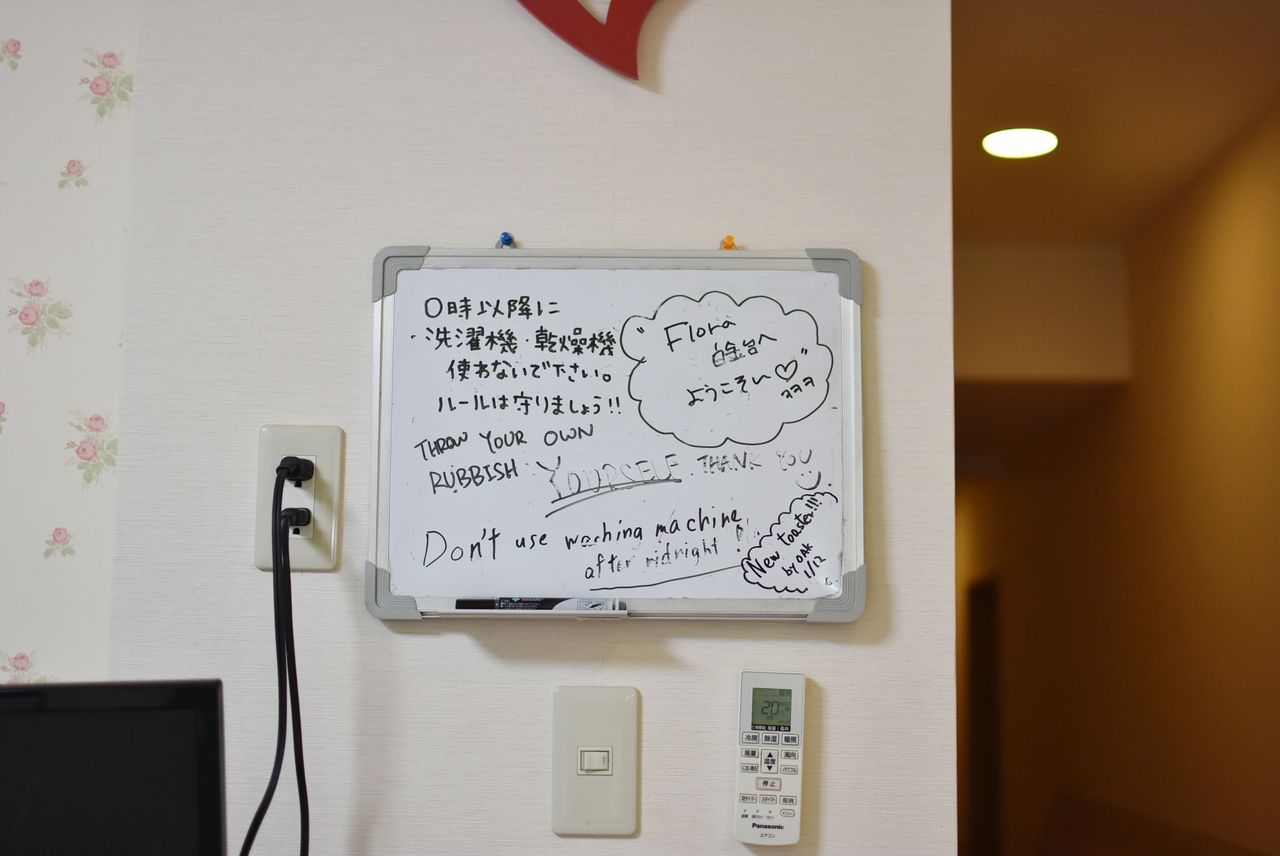 0時以降に
洗濯機・乾燥機
使わないで下さい。
ルールは守りましょう!!
"Flora
白金台へ
ようこそい♡"
ｷｷｷ
THROW YOUR OWN
RUBBISH YOURSELF. THANK YOU
Don't use waching machine
after midnight!
New toaster!!!
by OAK
1/12
20
冷房 除湿 暖房
風量 温度 風向
パワフル
停止
切タイマー 入タイマー 取消
メニュー
Panasonic
エアコン